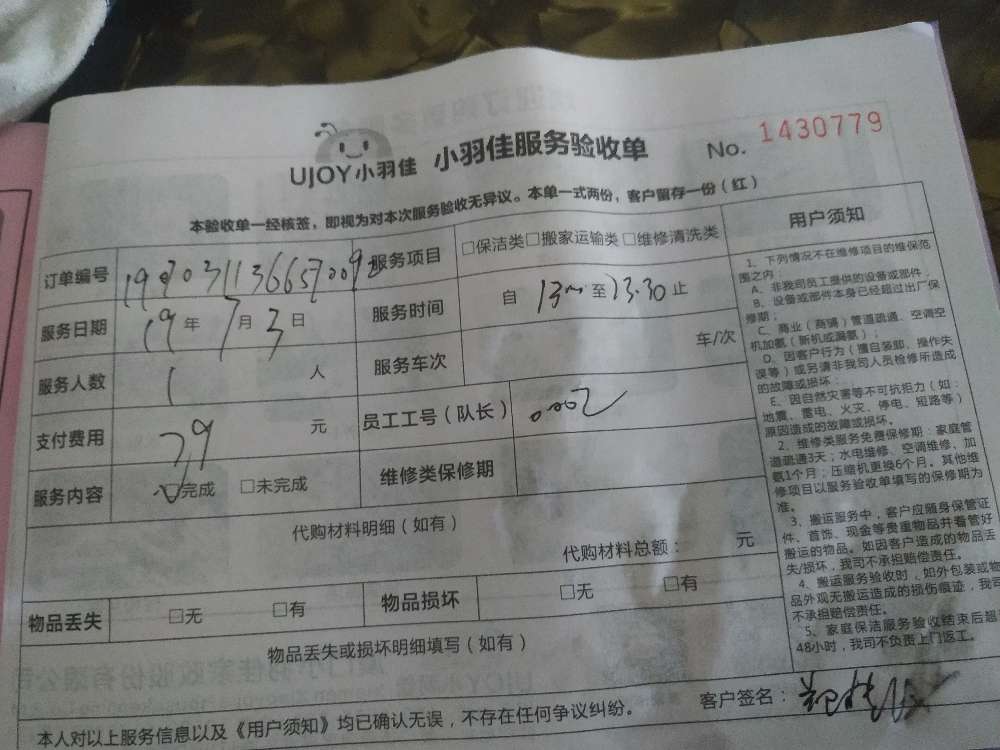 UJOY小羽佳 小羽佳服务验收单 No. 1430779
本验收单一经核签，即视为对本次服务验收无异议。本单一式两份，客户留存一份（红）
订单编号 服务项目 □保洁类□搬家运输类□维修清洗类
服务日期 19年7月3日 服务时间 自 至 23.30 止
服务人数 1 人 服务车次 车/次
支付费用 元 员工工号（队长）
服务内容 □完成 □未完成 维修类保修期
代购材料明细（如有）
代购材料总额： 元
物品丢失 □无 □有 物品损坏 □无 □有
物品丢失或损坏明细填写（如有）
本人对以上服务信息以及《用户须知》均已确认无误，不存在任何争议纠纷。 客户签名：
用户须知
1、下列情况不在维修项目的维保范
围之内：
A、非我司员工提供的设备或部件；
B、设备或部件本身已经超过出厂保
修期；
C、商业（商铺）管道疏通、空调空
机加氨（新机或漏氨）；
D、因客户行为（擅自装卸、操作失
误等）或另请非我司人员检修所造成
的故障或损坏；
E、因自然灾害等不可抗拒力（如：
地震、雷电、火灾、停电、短路等）
原因造成的故障或损坏。
2、维修类服务免费保修期：家庭管
道疏通3天；水电维修、空调维修、加
氨1个月；压缩机更换6个月。其他维
修项目以服务验收单填写的保修期为
准。
3、搬运服务中，客户应随身保管证
件、首饰、现金等贵重物品并看管好
搬运的物品。如因客户造成的物品丢
失/损坏，我司不承担赔偿责任。
4、搬运服务验收时，如外包装或物
品外观无搬运造成的损伤痕迹，我司
不承担赔偿责任。
5、家庭保洁服务验收结束后超
48小时，我司不负责上门返工。